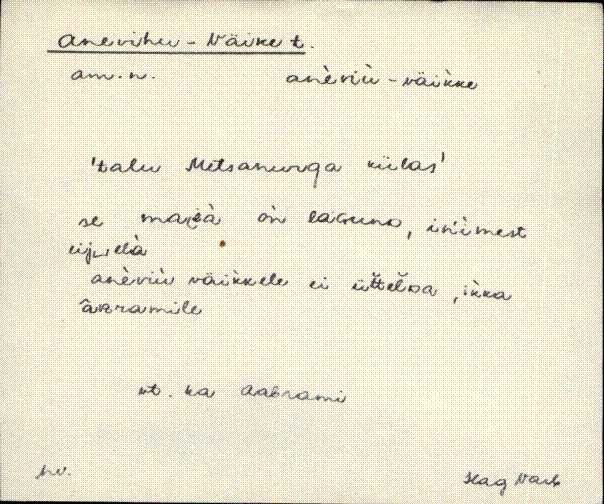 Anevihu - Väike t.
am. n. anèviù - väikke
'talu Metsanurga külas'
se majà òn laGuno, inimest
elà
anèviù väikkele ei üttelDa, ikka
âBramile
vt. ka Aabrami
Hag